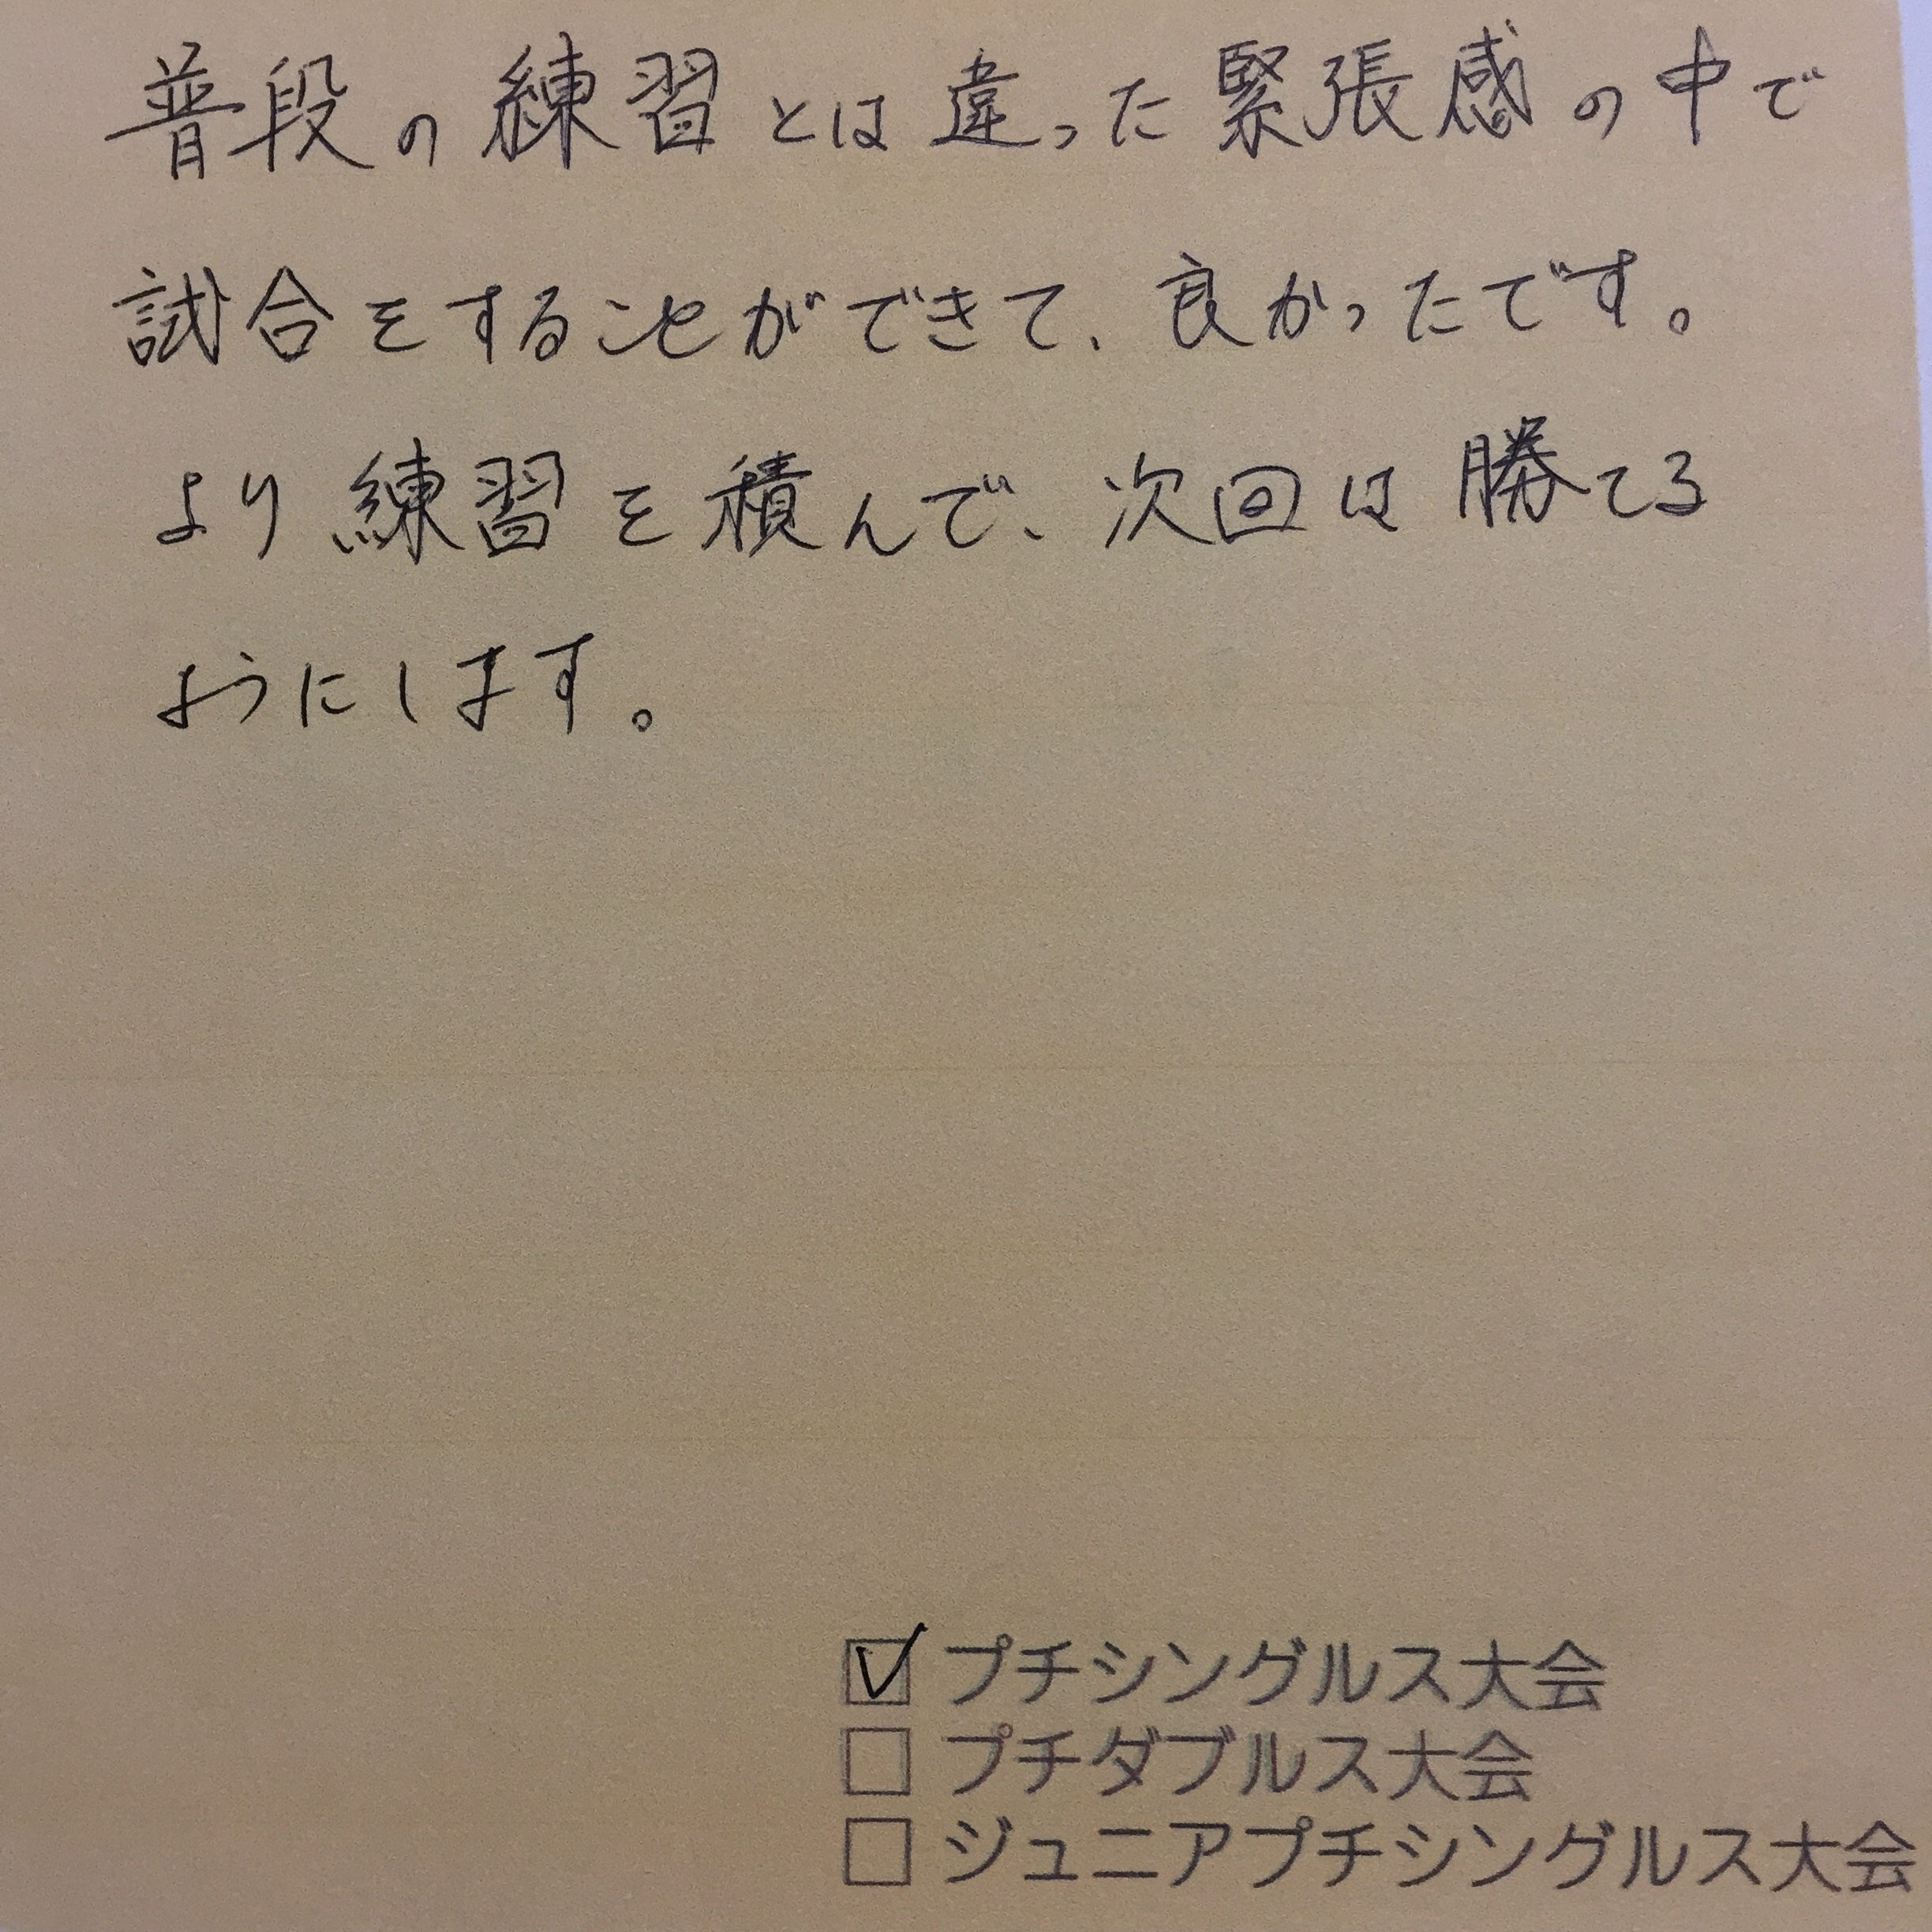 普段の練習とは違った緊張感の中で
試合をすることができて、良かったです。
より練習を積んで、次回は勝てる
ようにします。
☑ プチシングルス大会
☐ プチダブルス大会
☐ ジュニアプチシングルス大会